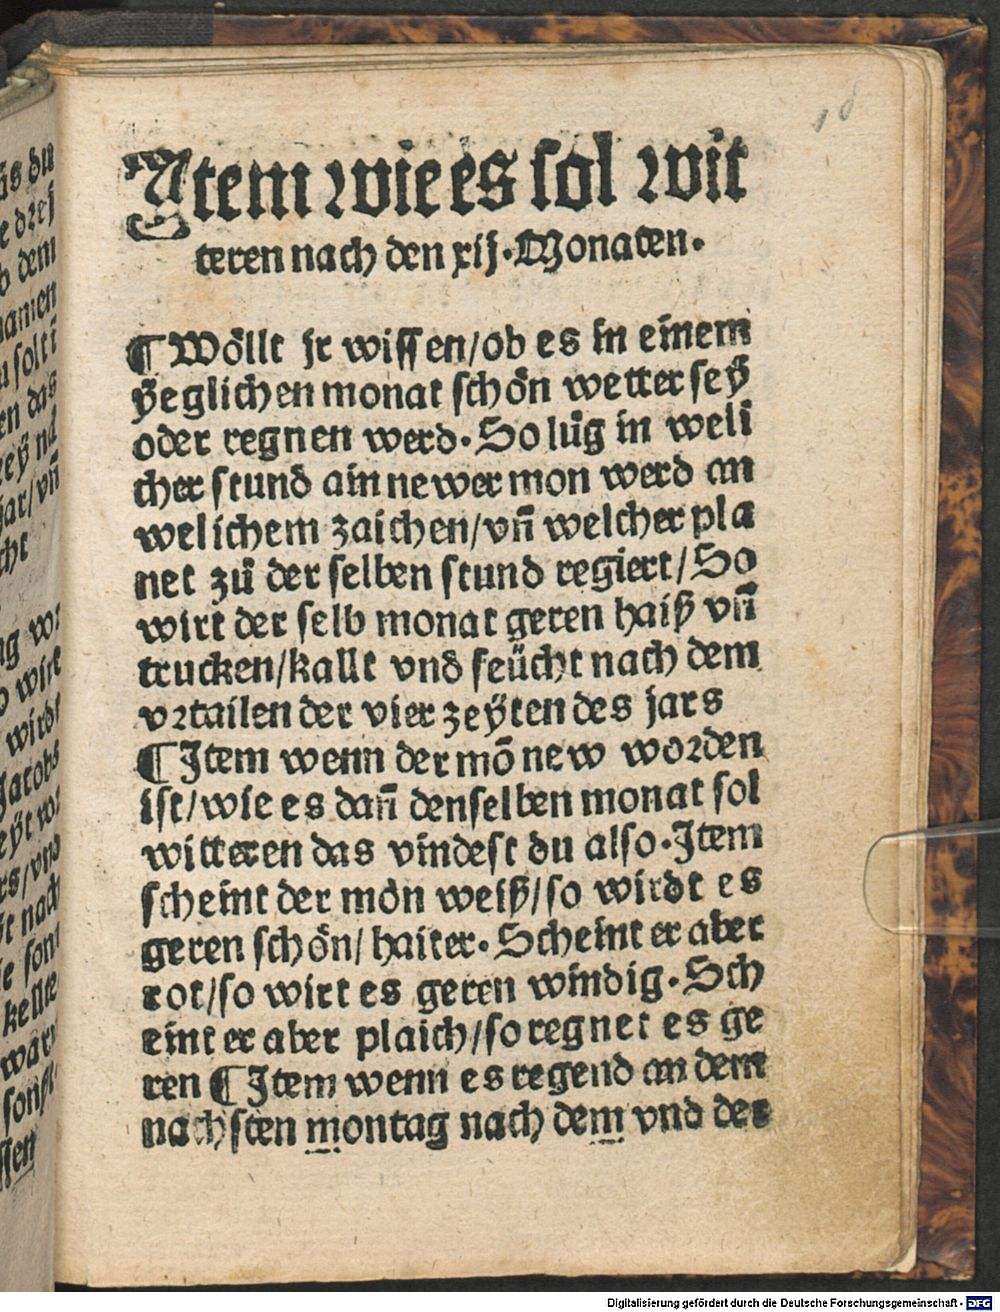 10
Item wie es sol wit
teren nach den xij. Monaten.
¶ Wöllt jr wissen/ob es in einem
ÿeglichen monat schön wetter seÿ
oder regnen werd. So lůg in weli
cher stund ain newer mon werd an
welichem zaichen/vñ welcher pla
net zů der selben stund regiert/So
wirt der selb monat geren haiß vñ
trucken/kallt vnd feücht nach dem
vrtailen der vier zeÿten des jars
¶ Item wenn der mō new worden
ist/wie es dañ denselben monat sol
witteren das vindest du also. Item
scheint der mon weiß/so wirdt es
geren schön/haiter. Scheint er aber
rot/so wirt es geren windig. Sch
eint er aber plaich/so regnet es ge
ren ¶ Item wenn es regend an dem
nachsten montag nach dem vnd der
Digitalisierung gefördert durch die Deutsche Forschungsgemeinschaft - DFG